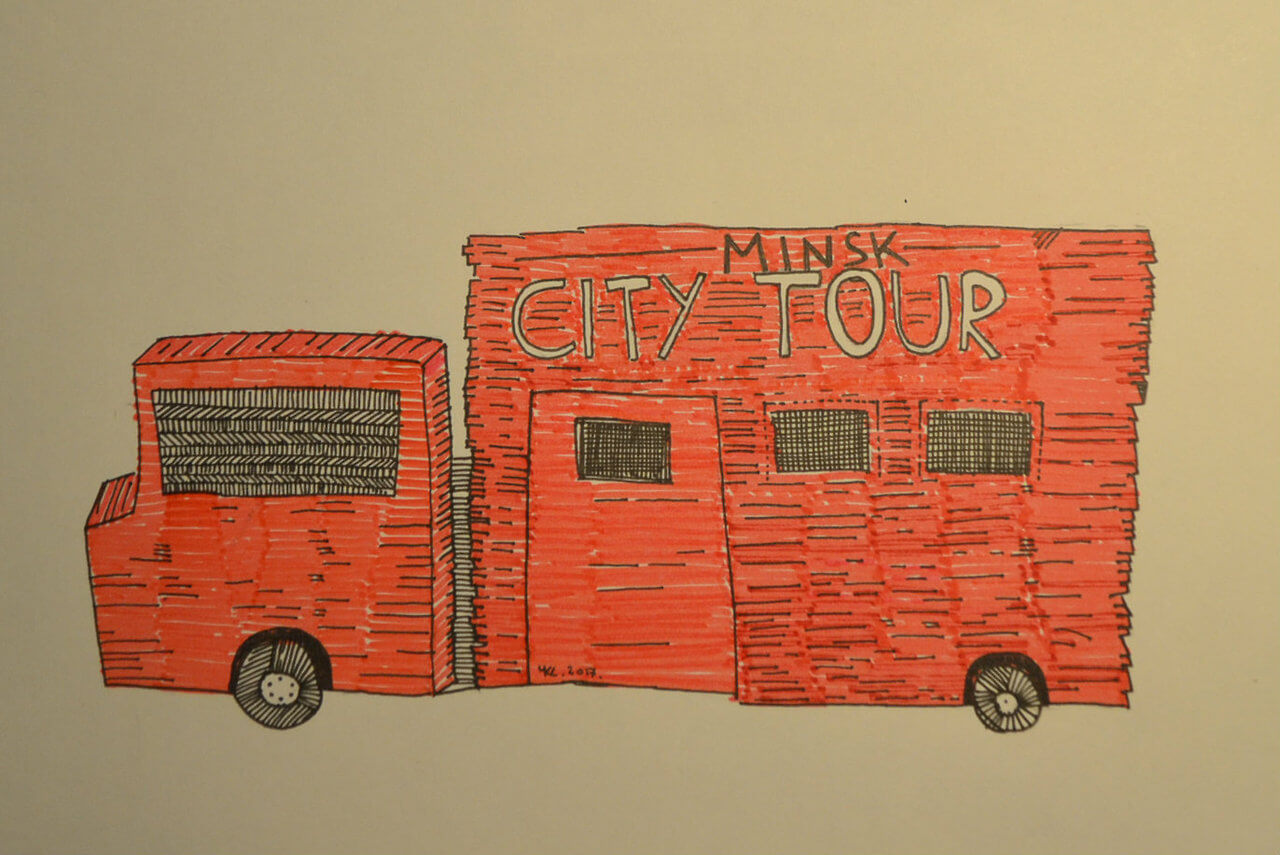 MINSK
CITY TOUR
2017.